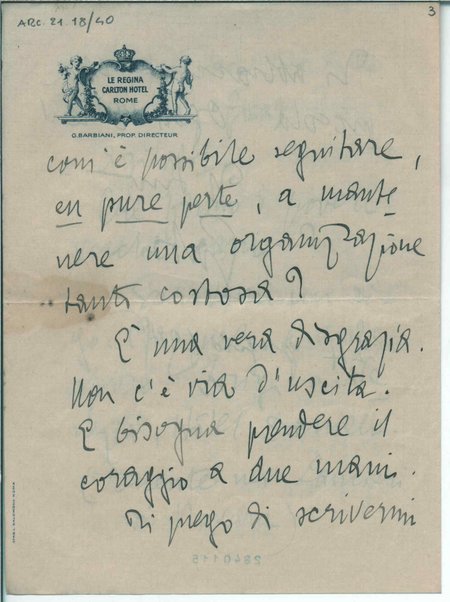 ARC. 21. 18/40
3
LE REGINA
CARLTON HOTEL
ROME
G. BARBIANI, PROP. DIRECTEUR
com'è possibile seguitare,
en pure perte, a mante
nere una organizzazione
tanto costosa?
È una vera disgrazia.
Non c'è via d'uscita.
E bisogna prendere il
coraggio a due mani.
Ti prego di scrivermi
2840115